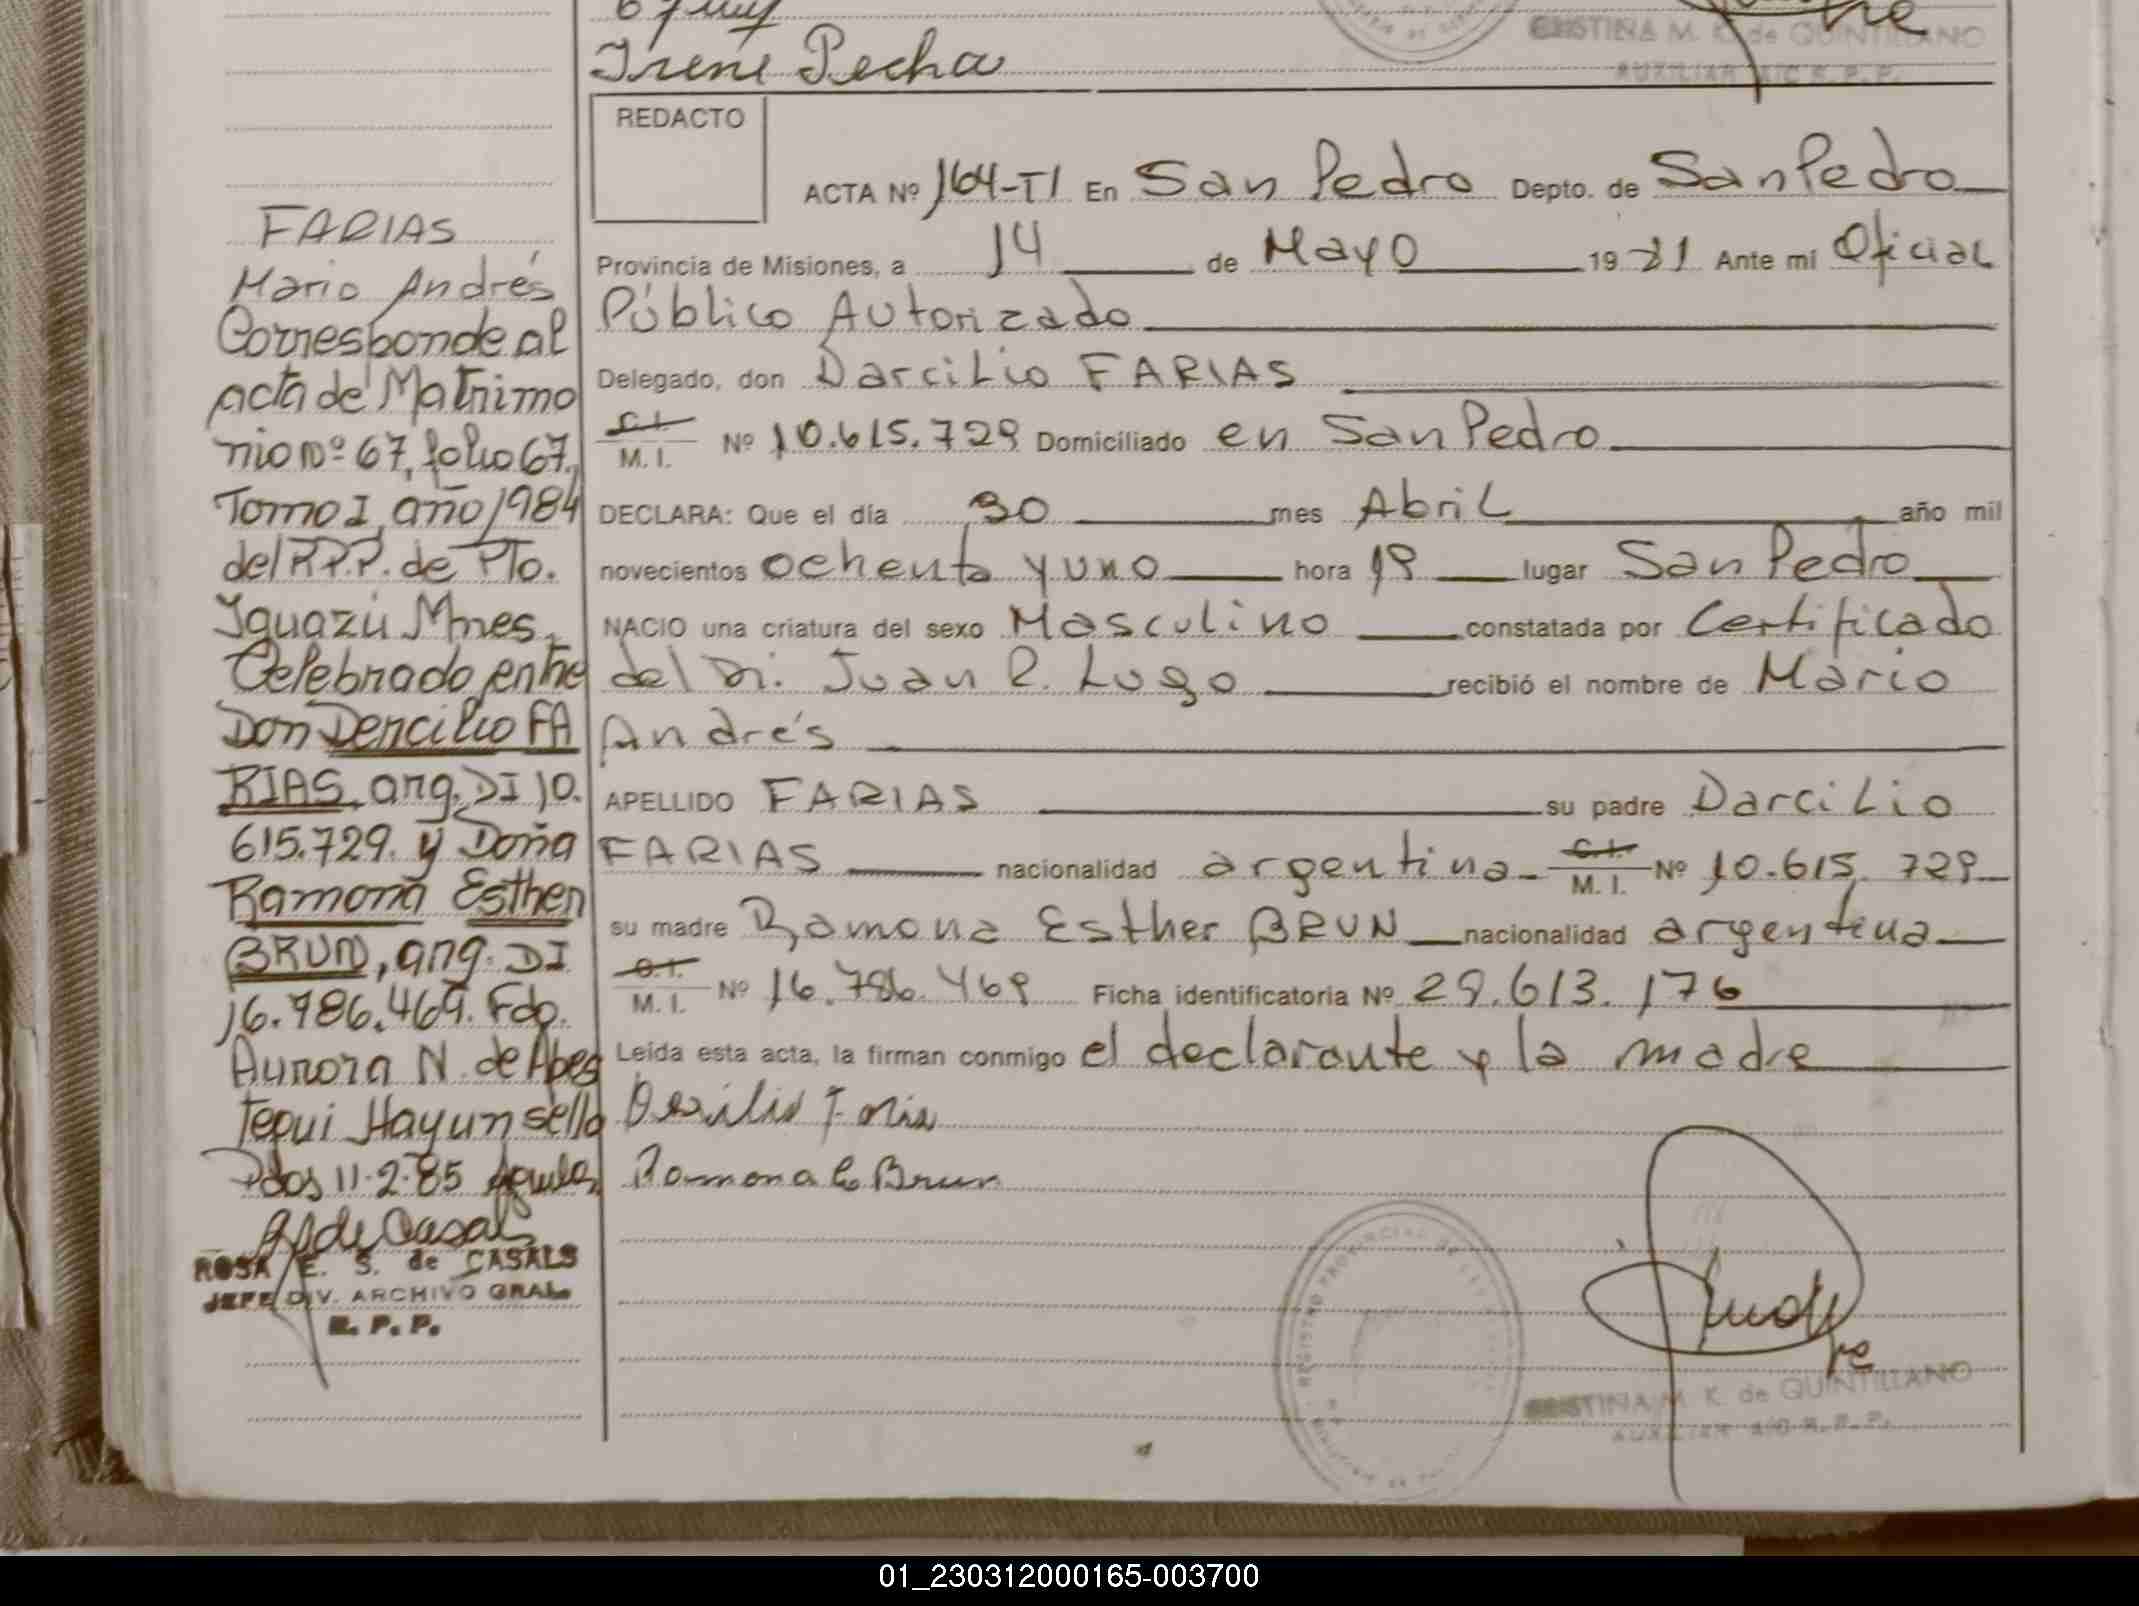 Irene Pecha
CRISTINA M. K. de QUINTILLANO
AUXILIAR A/C R. P. P.
FARIAS
Mario Andrés
Corresponde al
acta de Matrimo
nio Nº 67, folio 67,
Tomo I, año 1984
del R.P.P. de Pto.
Iguazú Mnes.
Celebrado entre
Don Dercilio FA
RIAS, arg. DI 10.
615.729. y Doña
Ramona Esther
BRUN, arg. DI
16.786.469. Fdo.
Aurora N. de
Hay un sello
Pdas 11-2-85
R de Casals
ROSA E. S. de CASALS
JEFE DIV. ARCHIVO GRAL.
R. P. P.
REDACTO
ACTA Nº 164-TI En San Pedro Depto. de San Pedro
Provincia de Misiones, a 14 de Mayo 1981 Ante mi Oficial
Público Autorizado
Delegado, don Darcilio FARIAS
C.I. M. I. Nº 10.615.729 Domiciliado en San Pedro
DECLARA: Que el día 30 mes Abril año mil
novecientos ochenta y uno hora 19 lugar San Pedro
NACIO una criatura del sexo Masculino constatada por Certificado
del Dr. Juan R. Lugo recibió el nombre de Mario
Andrés
APELLIDO FARIAS su padre Darcilio
FARIAS nacionalidad argentina C.I. M. I. Nº 10.615.729
su madre Ramona Esther BRUN nacionalidad argentina
C.I. M. I. Nº 16.786.469 Ficha identificatoria Nº 29.613.176
Leída esta acta, la firman conmigo el declarante y la madre
Dercilio Faria
Ramona E Brun
REGISTRO PROVINCIAL DE LAS
CRISTINA M. K. de QUINTILLANO
AUXILIAR A/C R. P. P.
01_230312000165-003700